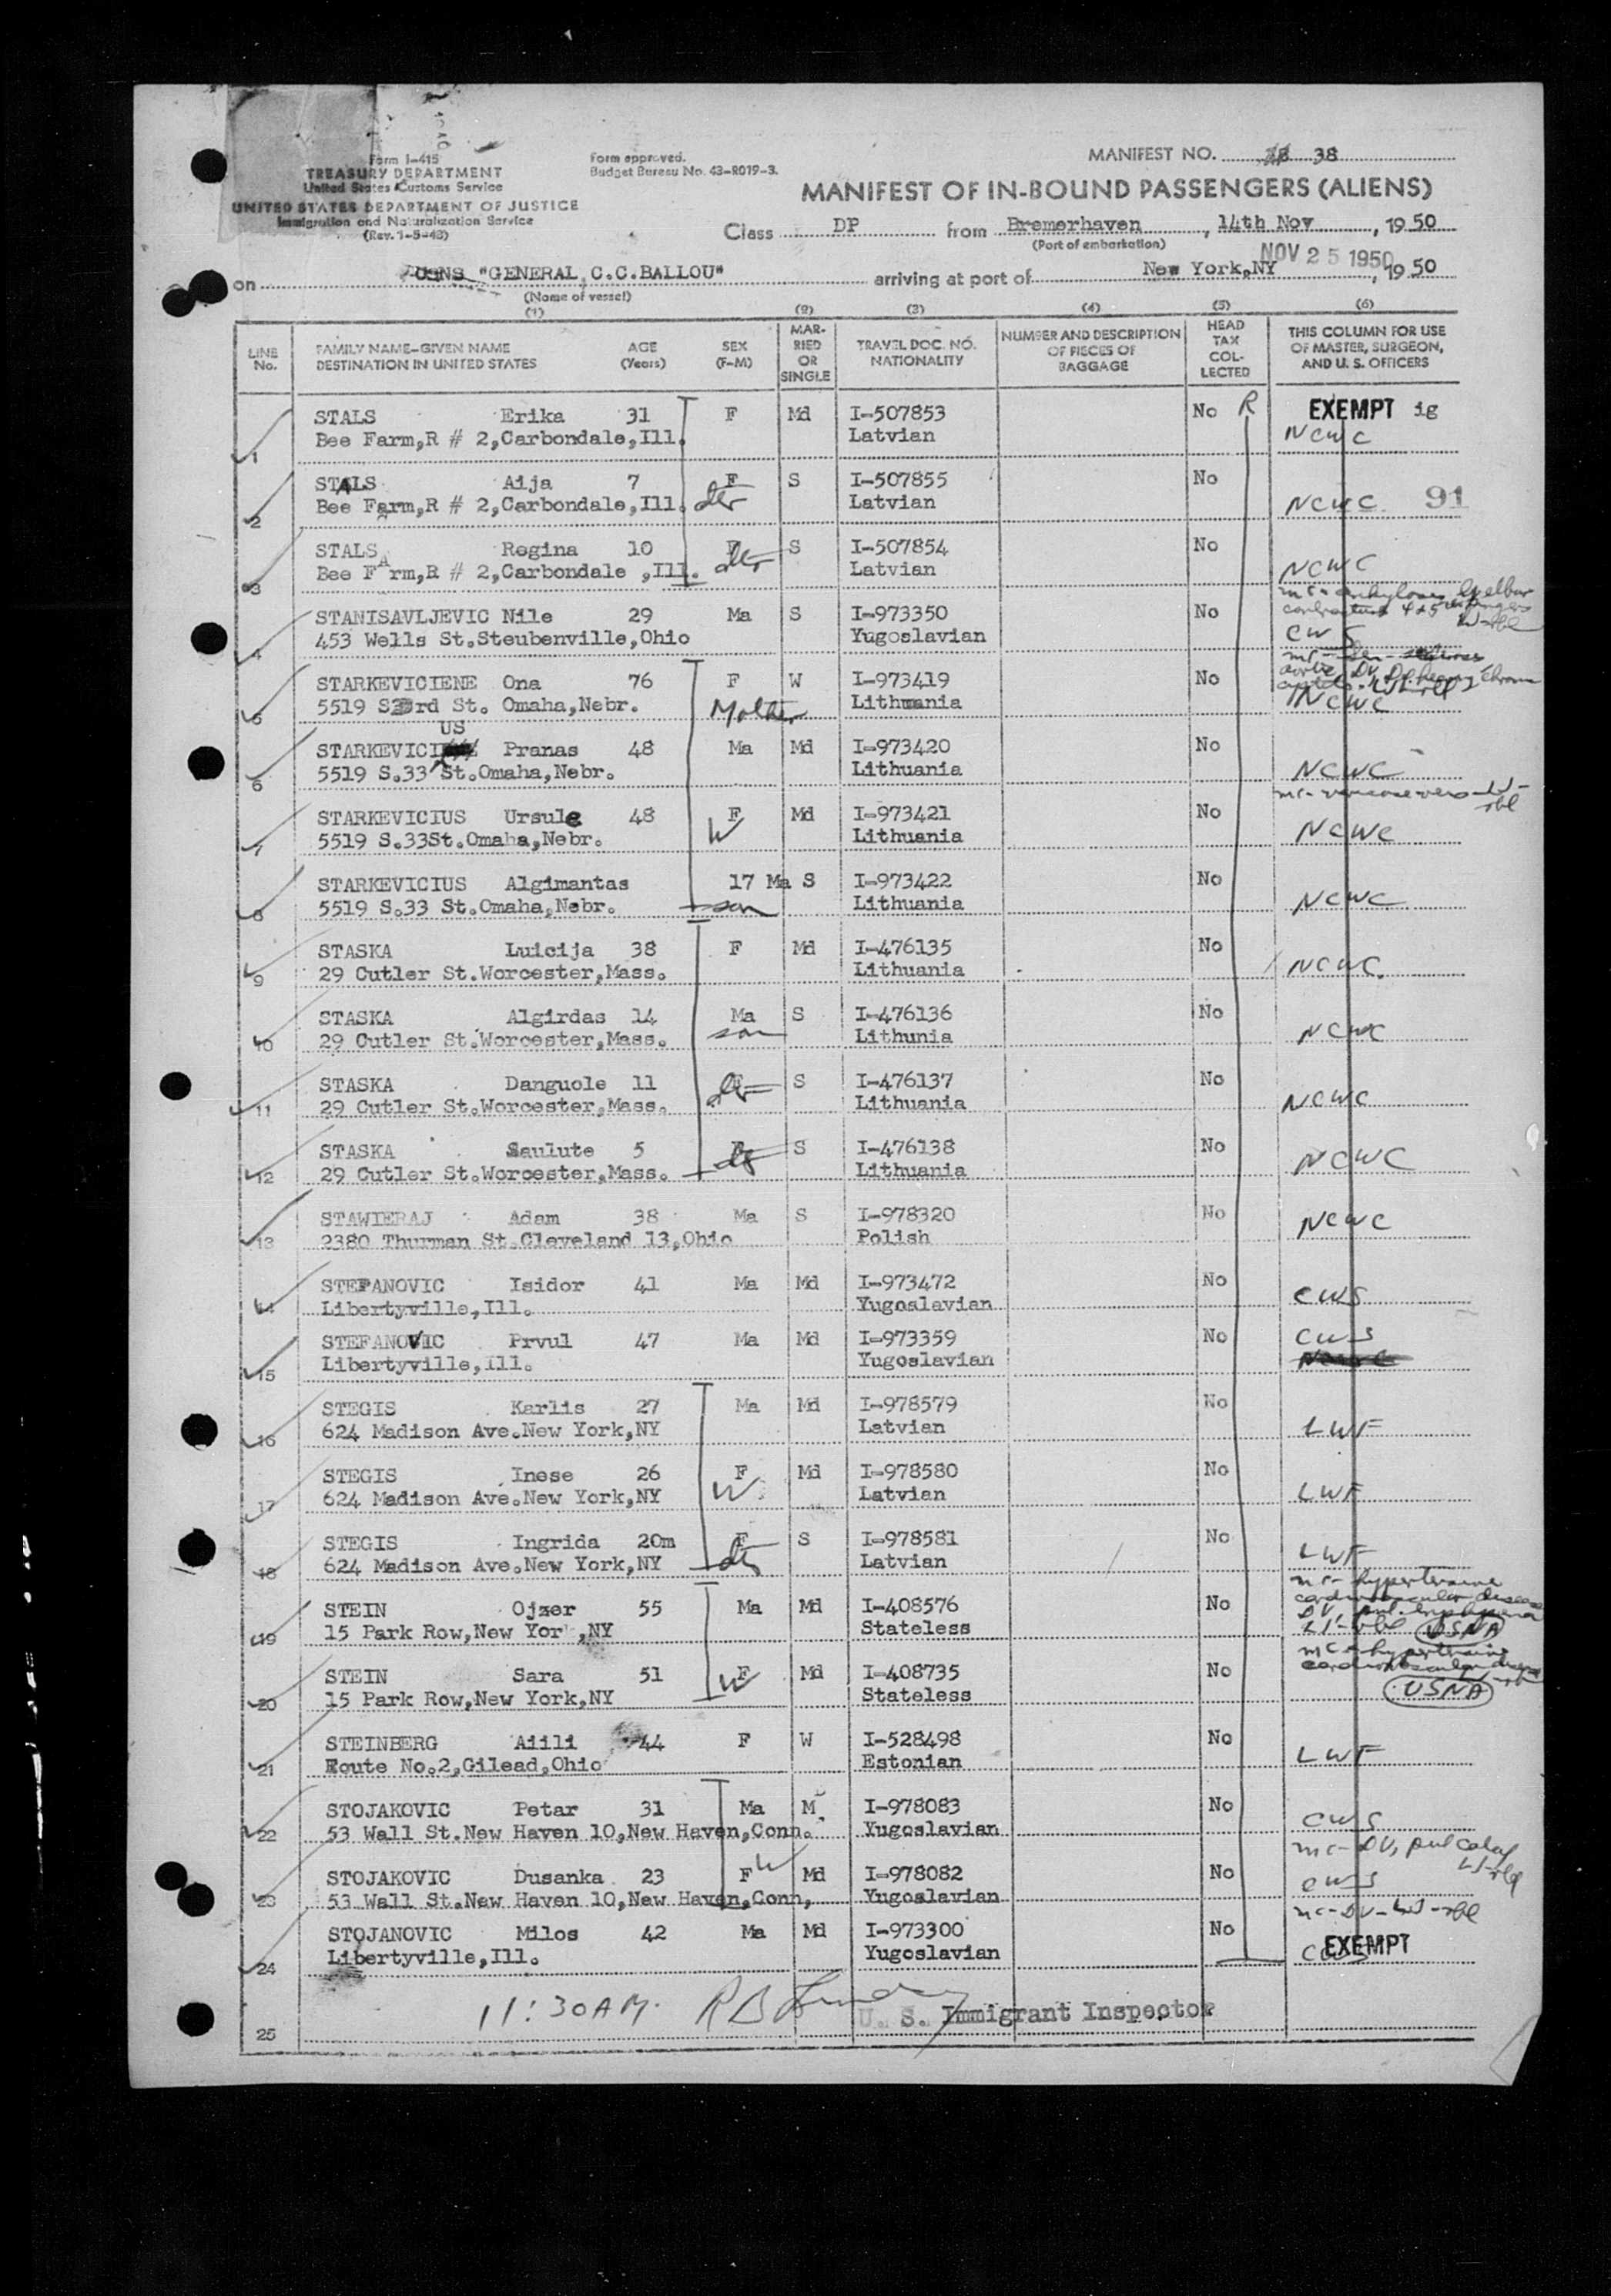 Form I-415
TREASURY DEPARTMENT
United States Customs Service
UNITED STATES DEPARTMENT OF JUSTICE
Immigration and Naturalization Service
(Rev. 1-5-48)
Form approved.
Budget Bureau No. 43-R019-3.
MANIFEST NO. 38
MANIFEST OF IN-BOUND PASSENGERS (ALIENS)
Class DP from Bremerhaven, 14th Nov, 1950
(Port of embarkation)
NOV 25 1950
on USNS "GENERAL C.C.BALLOU" arriving at port of New York,NY, 1950
(Name of vessel)
(1) (2) (3) (4) (5) (6)
LINE No.
FAMILY NAME-GIVEN NAME
DESTINATION IN UNITED STATES
AGE (Years)
SEX (F-M)
MARRIED OR SINGLE
TRAVEL DOC. NO. NATIONALITY
NUMBER AND DESCRIPTION OF PIECES OF BAGGAGE
HEAD TAX COLLECTED
THIS COLUMN FOR USE OF MASTER, SURGEON, AND U. S. OFFICERS
STALS Erika 31 F Md I-507853 No R EXEMPT ig
1 Bee Farm,R # 2,Carbondale,Ill. Latvian NCWC
STALS Aija 7 F S I-507855 No
2 Bee Farm,R # 2,Carbondale,Ill. dtr Latvian NCWC 91
STALS Regina 10 F dtr S I-507854 No
3 Bee Farm,R # 2,Carbondale ,Ill. Latvian NCWC
STANISAVLJEVIC Nile 29 Ma S I-973350 No
4 453 Wells St.Steubenville,Ohio Yugoslavian CWS
STARKEVICIENE Ona 76 F W I-973419 No
5 5519 S33rd St. Omaha,Nebr. Mother Lithuania NCWC
US
STARKEVICI Pranas 48 Ma Md I-973420 No
6 5519 S.33 St.Omaha,Nebr. Lithuania NCWC
STARKEVICIUS Ursule 48 F Md I-973421 No
7 5519 S.33St.Omaha,Nebr. W Lithuania NCWC
STARKEVICIUS Algimantas 17 Ma S I-973422 No
8 5519 S.33 St.Omaha,Nebr. son Lithuania NCWC
STASKA Luicija 38 F Md I-476135 No
9 29 Cutler St.Worcester,Mass. Lithuania NCWC
STASKA Algirdas 14 Ma S I-476136 No
10 29 Cutler St.Worcester,Mass. son Lithunia NCWC
STASKA Danguole 11 F dtr S I-476137 No
11 29 Cutler St.Worcester,Mass. Lithuania NCWC
STASKA Saulute 5 F S I-476138 No
12 29 Cutler St.Worcester,Mass. Lithuania NCWC
STAWIERAJ Adam 38 Ma S I-978320 No
13 2380 Thurman St.Cleveland 13,Ohio Polish NCWC
STEFANOVIC Isidor 41 Ma Md I-973472 No
14 Libertyville,Ill. Yugoslavian CWS
STEFANOVIC Prvul 47 Ma Md I-973359 No CWS
15 Libertyville,Ill. Yugoslavian
STEGIS Karlis 27 Ma Md I-978579 No
16 624 Madison Ave.New York,NY Latvian LWF
STEGIS Inese 26 F Md I-978580 No
17 624 Madison Ave.New York,NY W Latvian LWF
STEGIS Ingrida 20m F S I-978581 No
18 624 Madison Ave.New York,NY dtr Latvian LWF
STEIN Ojzer 55 Ma Md I-408576 No
19 15 Park Row,New Yor ,NY Stateless USNA
STEIN Sara 51 F W Md I-408735 No
20 15 Park Row,New York,NY Stateless USNA
STEINBERG Aiili 44 F W I-528498 No
21 Route No.2,Gilead,Ohio Estonian LWF
STOJAKOVIC Petar 31 Ma M I-978083 No
22 53 Wall St.New Haven 10,New Haven,Conn. Yugoslavian CWS
STOJAKOVIC Dusanka 23 F W Md I-978082 No
23 53 Wall St.New Haven 10,New Haven,Conn, Yugoslavian CWS
STOJANOVIC Milos 42 Ma Md I-973300 No
24 Libertyville,Ill. Yugoslavian CWS EXEMPT
11:30AM.
U. S. Immigrant Inspector
25